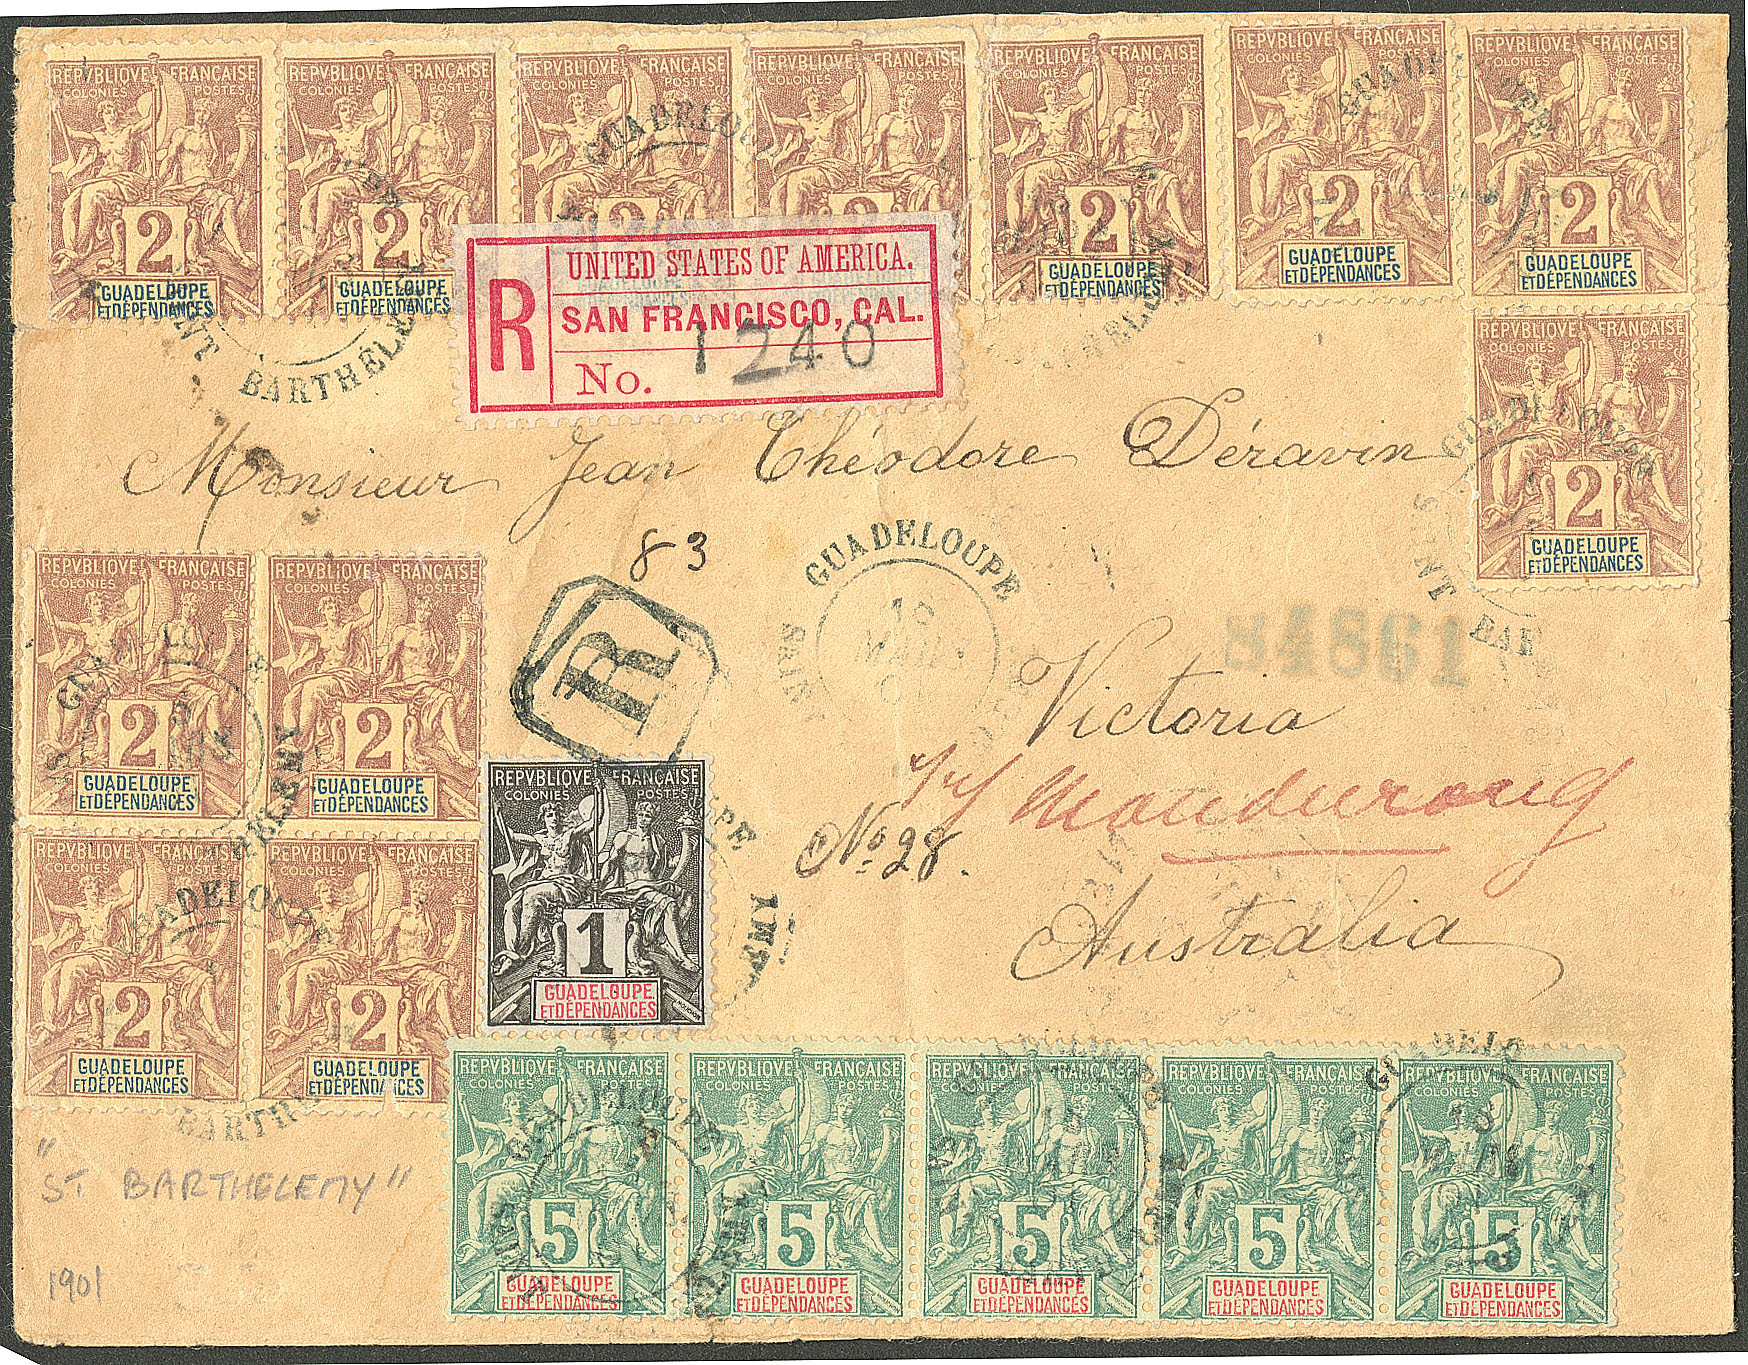 REPVBLIQVE FRANÇAISE REPVBLIQVE FRANÇAISE REPVBLIQVE FRANÇAISE REPVBLIQVE FRANÇAISE REPVBLIQVE FRANÇAISE REPVBLIQVE FRANÇAISE REPVBLIQVE FRANÇAISE
COLONIES POSTES COLONIES POSTES COLONIES POSTES COLONIES POSTES COLONIES POSTES COLONIES POSTES COLONIES POSTES
2 2 2 2 2 2 2
GUADELOUPE GUADELOUPE GUADELOUPE GUADELOUPE GUADELOUPE
ET DÉPENDANCES ET DÉPENDANCES ET DÉPENDANCES ET DÉPENDANCES ET DÉPENDANCES
GUADELOUPE
BARTHÉLEMY
R
UNITED STATES OF AMERICA.
SAN FRANCISCO, CAL.
No. 1240
REPVBLIQVE FRANÇAISE
COLONIES POSTES
2
GUADELOUPE
ET DÉPENDANCES
GUADELOUPE
SAINT BAR
Monsieur Jean Théodore Déravin
83
R
GUADELOUPE
10
MARS
SAINT
84861
Victoria
Mondurong
No. 28.
Australia
REPVBLIQVE FRANÇAISE REPVBLIQVE FRANÇAISE
COLONIES POSTES COLONIES POSTES
2 2
GUADELOUPE GUADELOUPE
ET DÉPENDANCES ET DÉPENDANCES
REPVBLIQVE FRANÇAISE REPVBLIQVE FRANÇAISE
2 2
GUADELOUPE GUADELOUPE
ET DÉPENDANCES ET DÉPENDANCES
REPVBLIQVE FRANÇAISE
COLONIES POSTES
1
GUADELOUPE
ET DÉPENDANCES
REPVBLIQVE FRANÇAISE REPVBLIQVE FRANÇAISE REPVBLIQVE FRANÇAISE REPVBLIQVE FRANÇAISE REPVBLIQVE FRANÇAISE
COLONIES POSTES COLONIES POSTES COLONIES POSTES COLONIES POSTES COLONIES POSTES
5 5 5 5 5
GUADELOUPE GUADELOUPE GUADELOUPE GUADELOUPE GUADELOUPE
ET DÉPENDANCES ET DÉPENDANCES ET DÉPENDANCES ET DÉPENDANCES ET DÉPENDANCES
"ST. BARTHELEMY"
1901